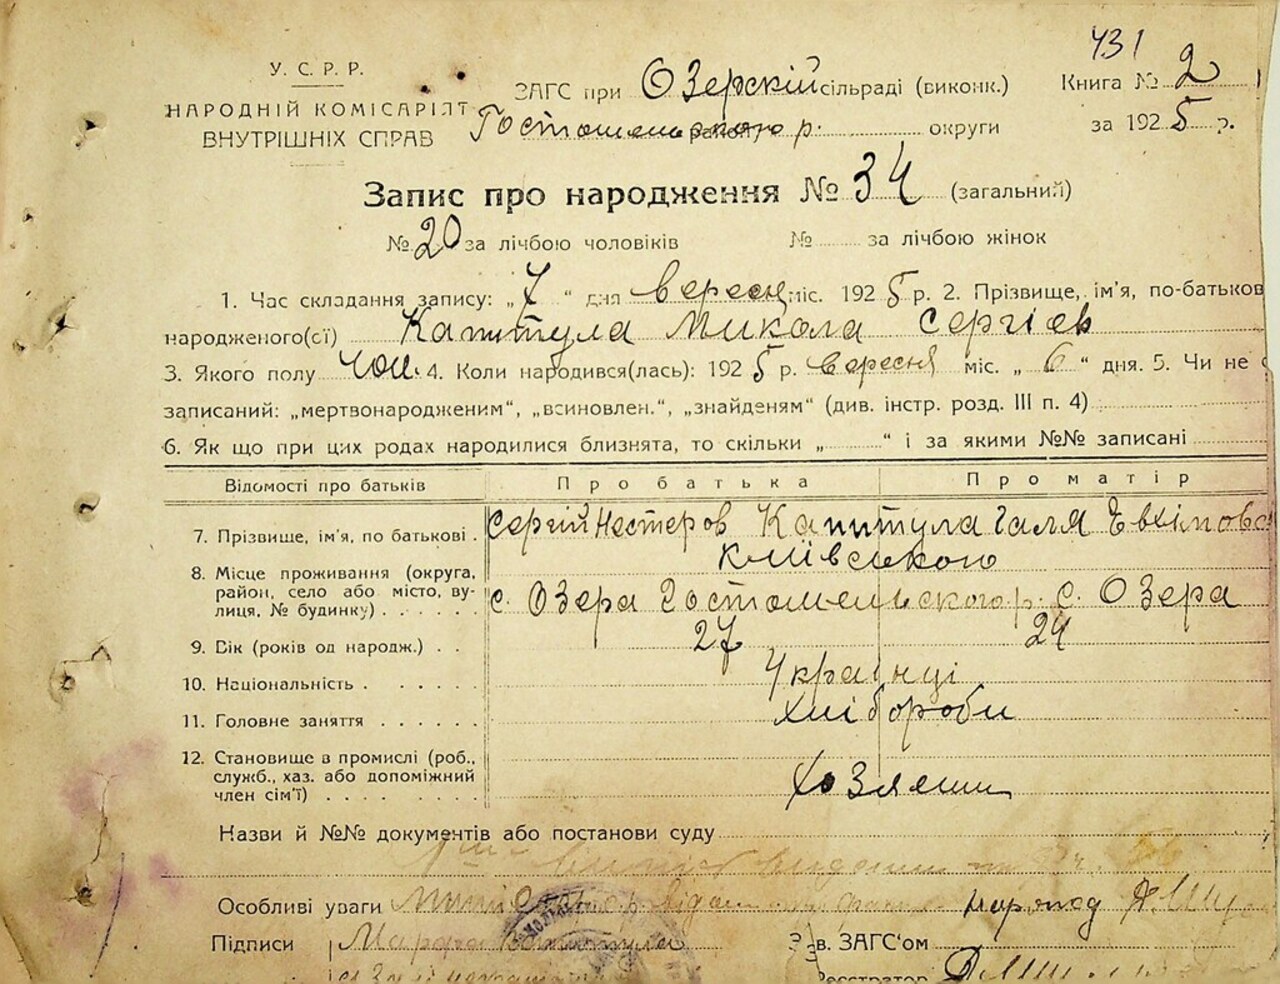 431
У. С. Р. Р.
НАРОДНІЙ КОМІСАРІЯТ
ВНУТРІШНІХ СПРАВ
ЗАГС при Озерскій сільраді (виконк.)
Гостомельського р. округи
Книга № 2
за 1925 р.
Запис про народження № 34 (загальний)
№ 20 за лічбою чоловіків № за лічбою жінок
1. Час складання запису: „7“ дня вересня міс. 1925 р. 2. Прізвище, ім'я, по-батькові
народженого(сї) Капитула Микола Сергіев
3. Якого полу чол. 4. Коли народився(лась): 1925 р. вересня міс. „6“ дня. 5. Чи не
записаний: „мертвонародженим“, „всиновлен.“, „знайденям“ (див. інстр. розд. III п. 4)
6. Як що при цих родах народилися близнята, то скільки „ “ і за якими №№ записані
Відомості про батьків Про батька Про матір
7. Прізвище, ім'я, по батькові . Сергій Нестеров Капитула Галя Евхімова
Київського
8. Місце проживання (округа, район, село або місто, вулиця, № будинку) с. Озера Гостомельського р. с. Озера
9. Вік (років од народж.) . . 27 24
10. Національність Українці
11. Головне заняття хлібороби
12. Становище в промислі (роб., служб., хаз. або допоміжний член сім'ї) хозяеши
Назви й №№ документів або постанови суду
Особливі уваги
Підписи Капитула
Зав. ЗАГС'ом
Реєстратор